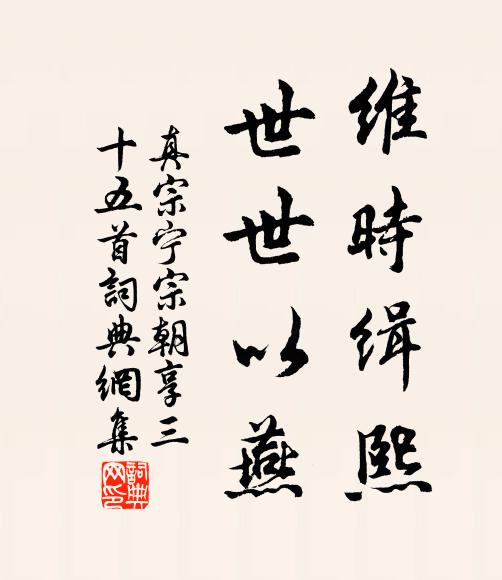 維時緝熙
世世以燕
真宗宁宗朝享三
十五首詞典網集
詞典網印